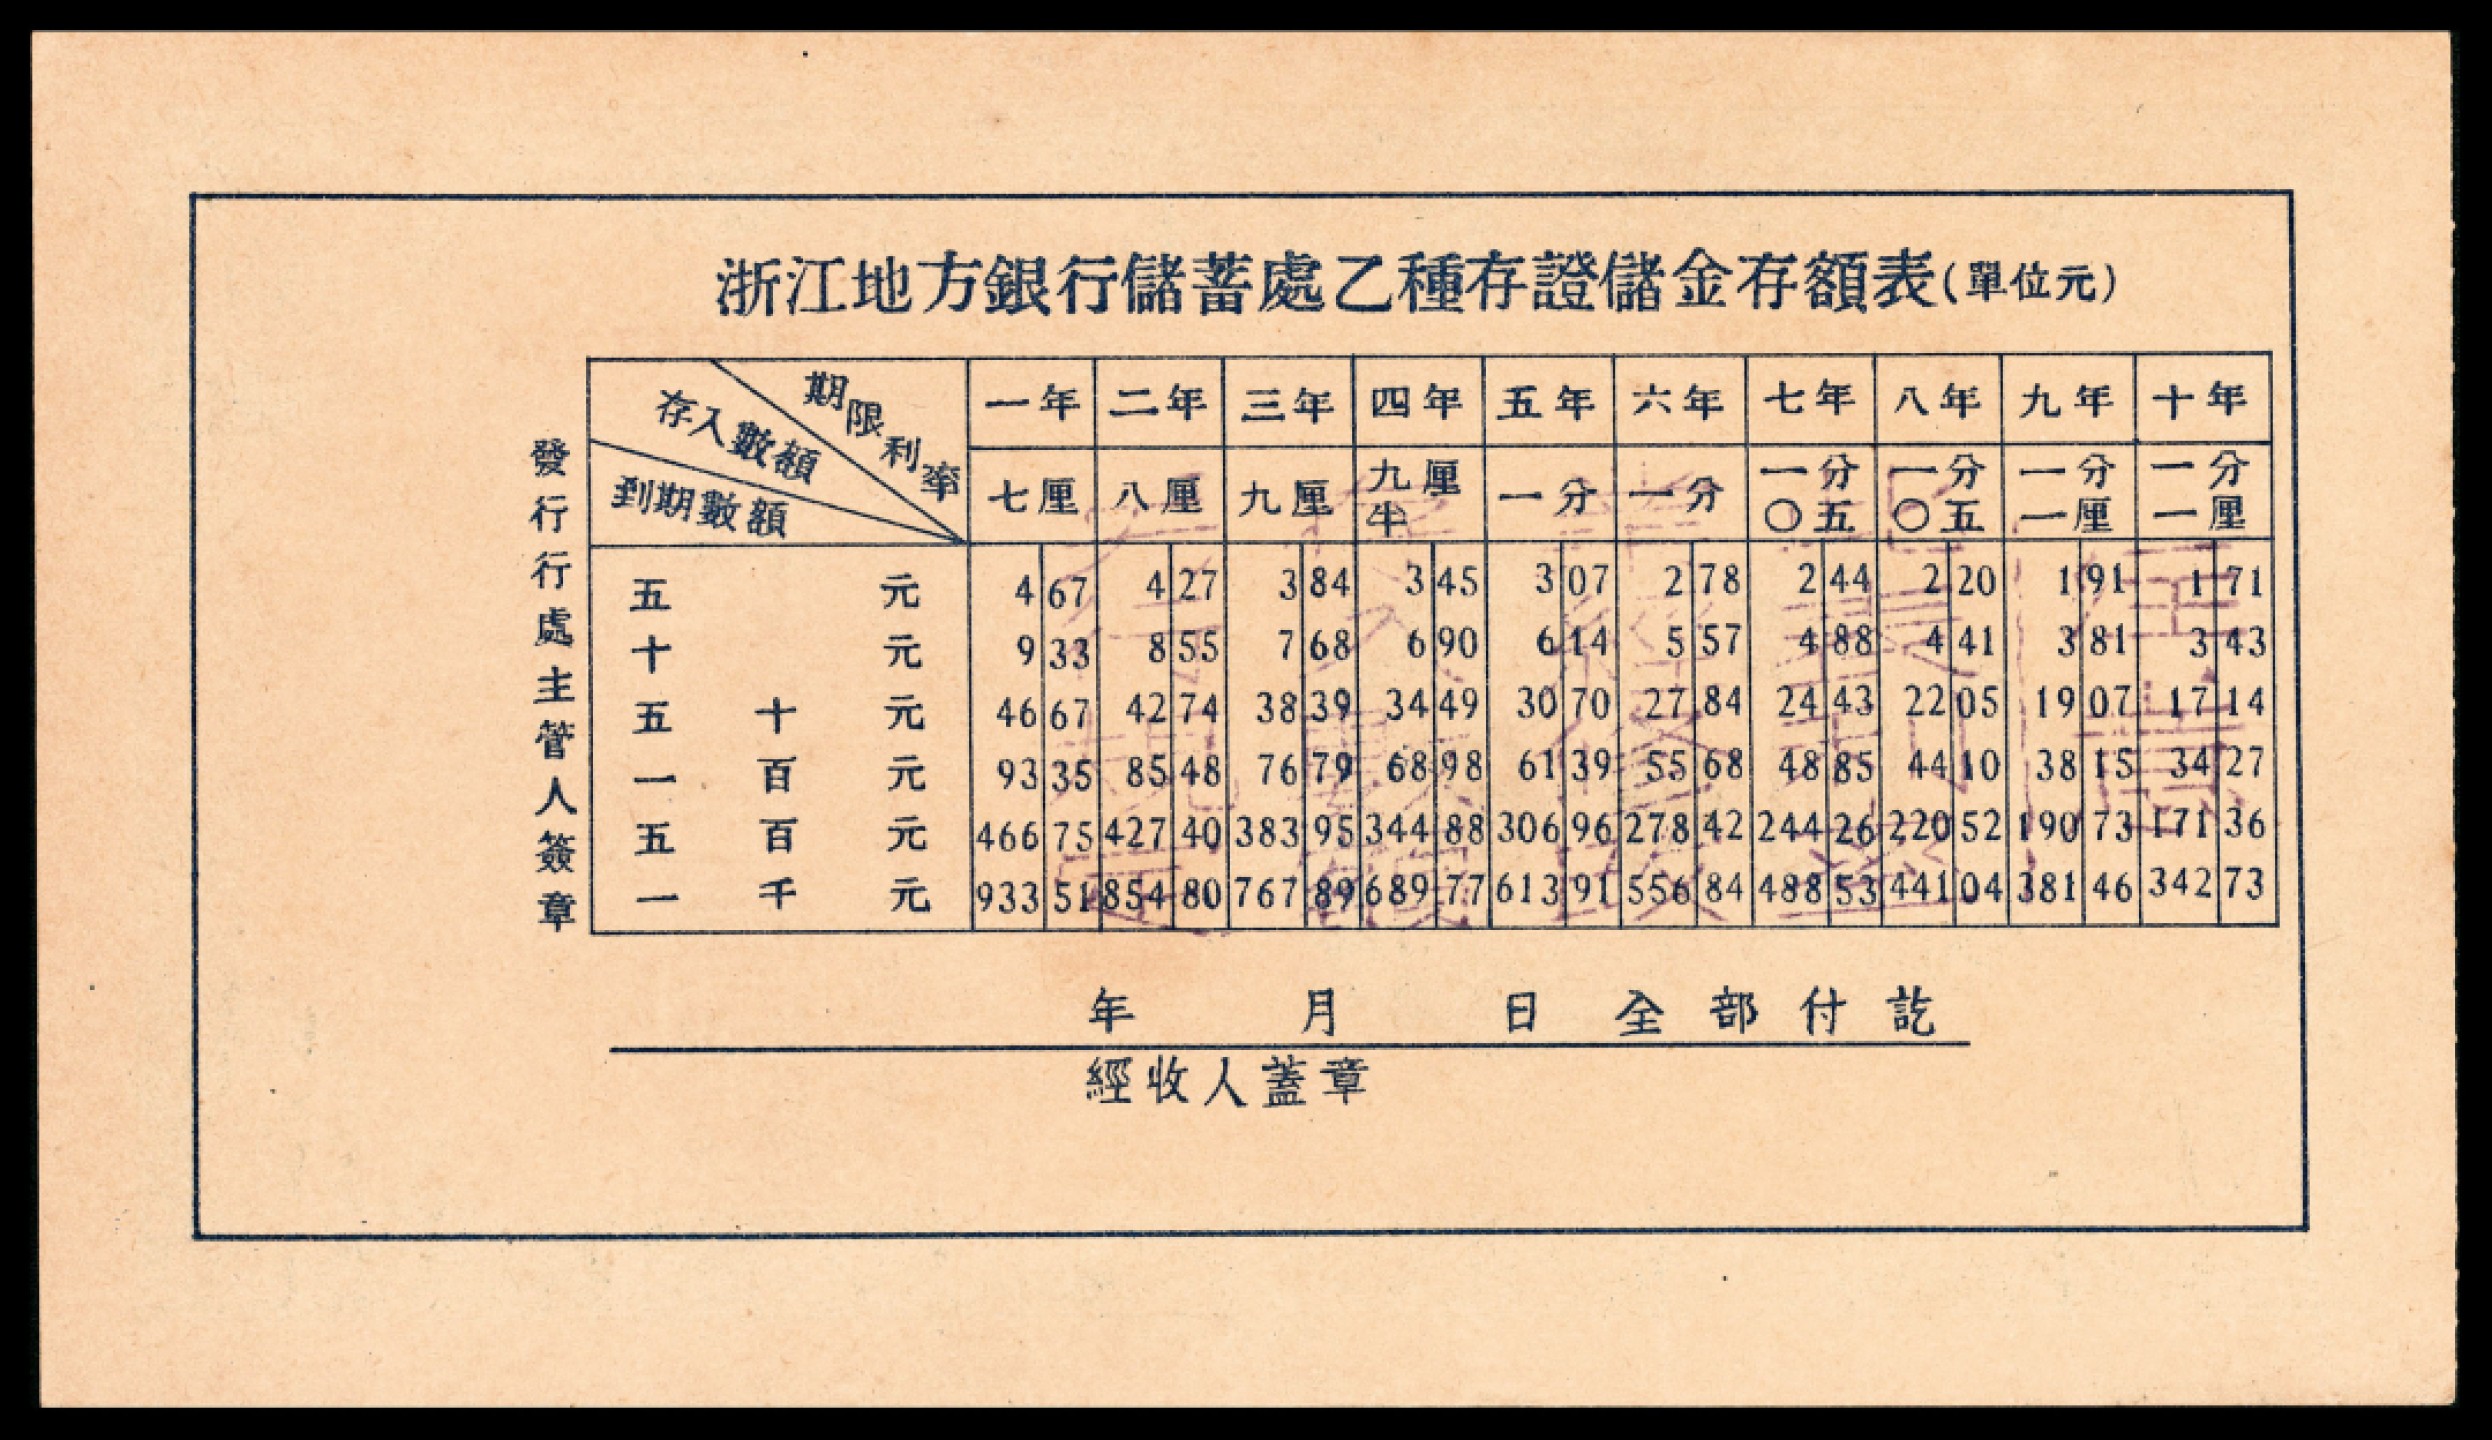 浙江地方銀行儲蓄處乙種存證儲金存額表(單位元)
期限利率 一年 二年 三年 四年 五年 六年 七年 八年 九年 十年
存入數額
到期數額 七厘 八厘 九厘 九厘半 一分 一分 一分〇五 一分〇五 一分一厘 一分一厘
五元 4 67 4 27 3 84 3 45 3 07 2 78 2 44 2 20 1 91 1 71
十元 9 33 8 55 7 68 6 90 6 14 5 57 4 88 4 41 3 81 3 43
五十元 46 67 42 74 38 39 34 49 30 70 27 84 24 43 22 05 19 07 17 14
一百元 93 35 85 48 76 79 68 98 61 39 55 68 48 85 44 10 38 15 34 27
五百元 466 75 427 40 383 95 344 88 306 96 278 42 244 26 220 52 190 73 171 36
一千元 933 51 854 80 767 89 689 77 613 91 556 84 488 53 441 04 381 46 342 73
發行行處主管人簽章
年 月 日全部付訖
經收人蓋章